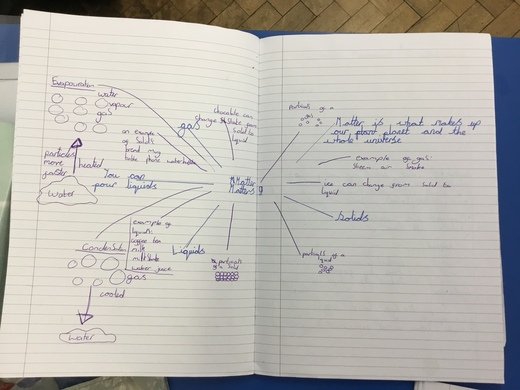 Evaporation
water
vapour
gas
particles
more
faster
heated
Water
an example
of Solids
bread mug
table phone water bottle
You can
pour liquids
gas
chocolate can
change state from
Solid to
liquid
Matter
Matters
example of
liquids
coffee tea
milk
milkshake
water juice
Liquids
particals
of a Solid
Condensation
gas
cooled
Water
particals of a
gas
Matter is what makes up
our planet and the
whole universe
example of gas
Steem air smoke
we can change from solid to
liquid
Solids
particals of a
liquid